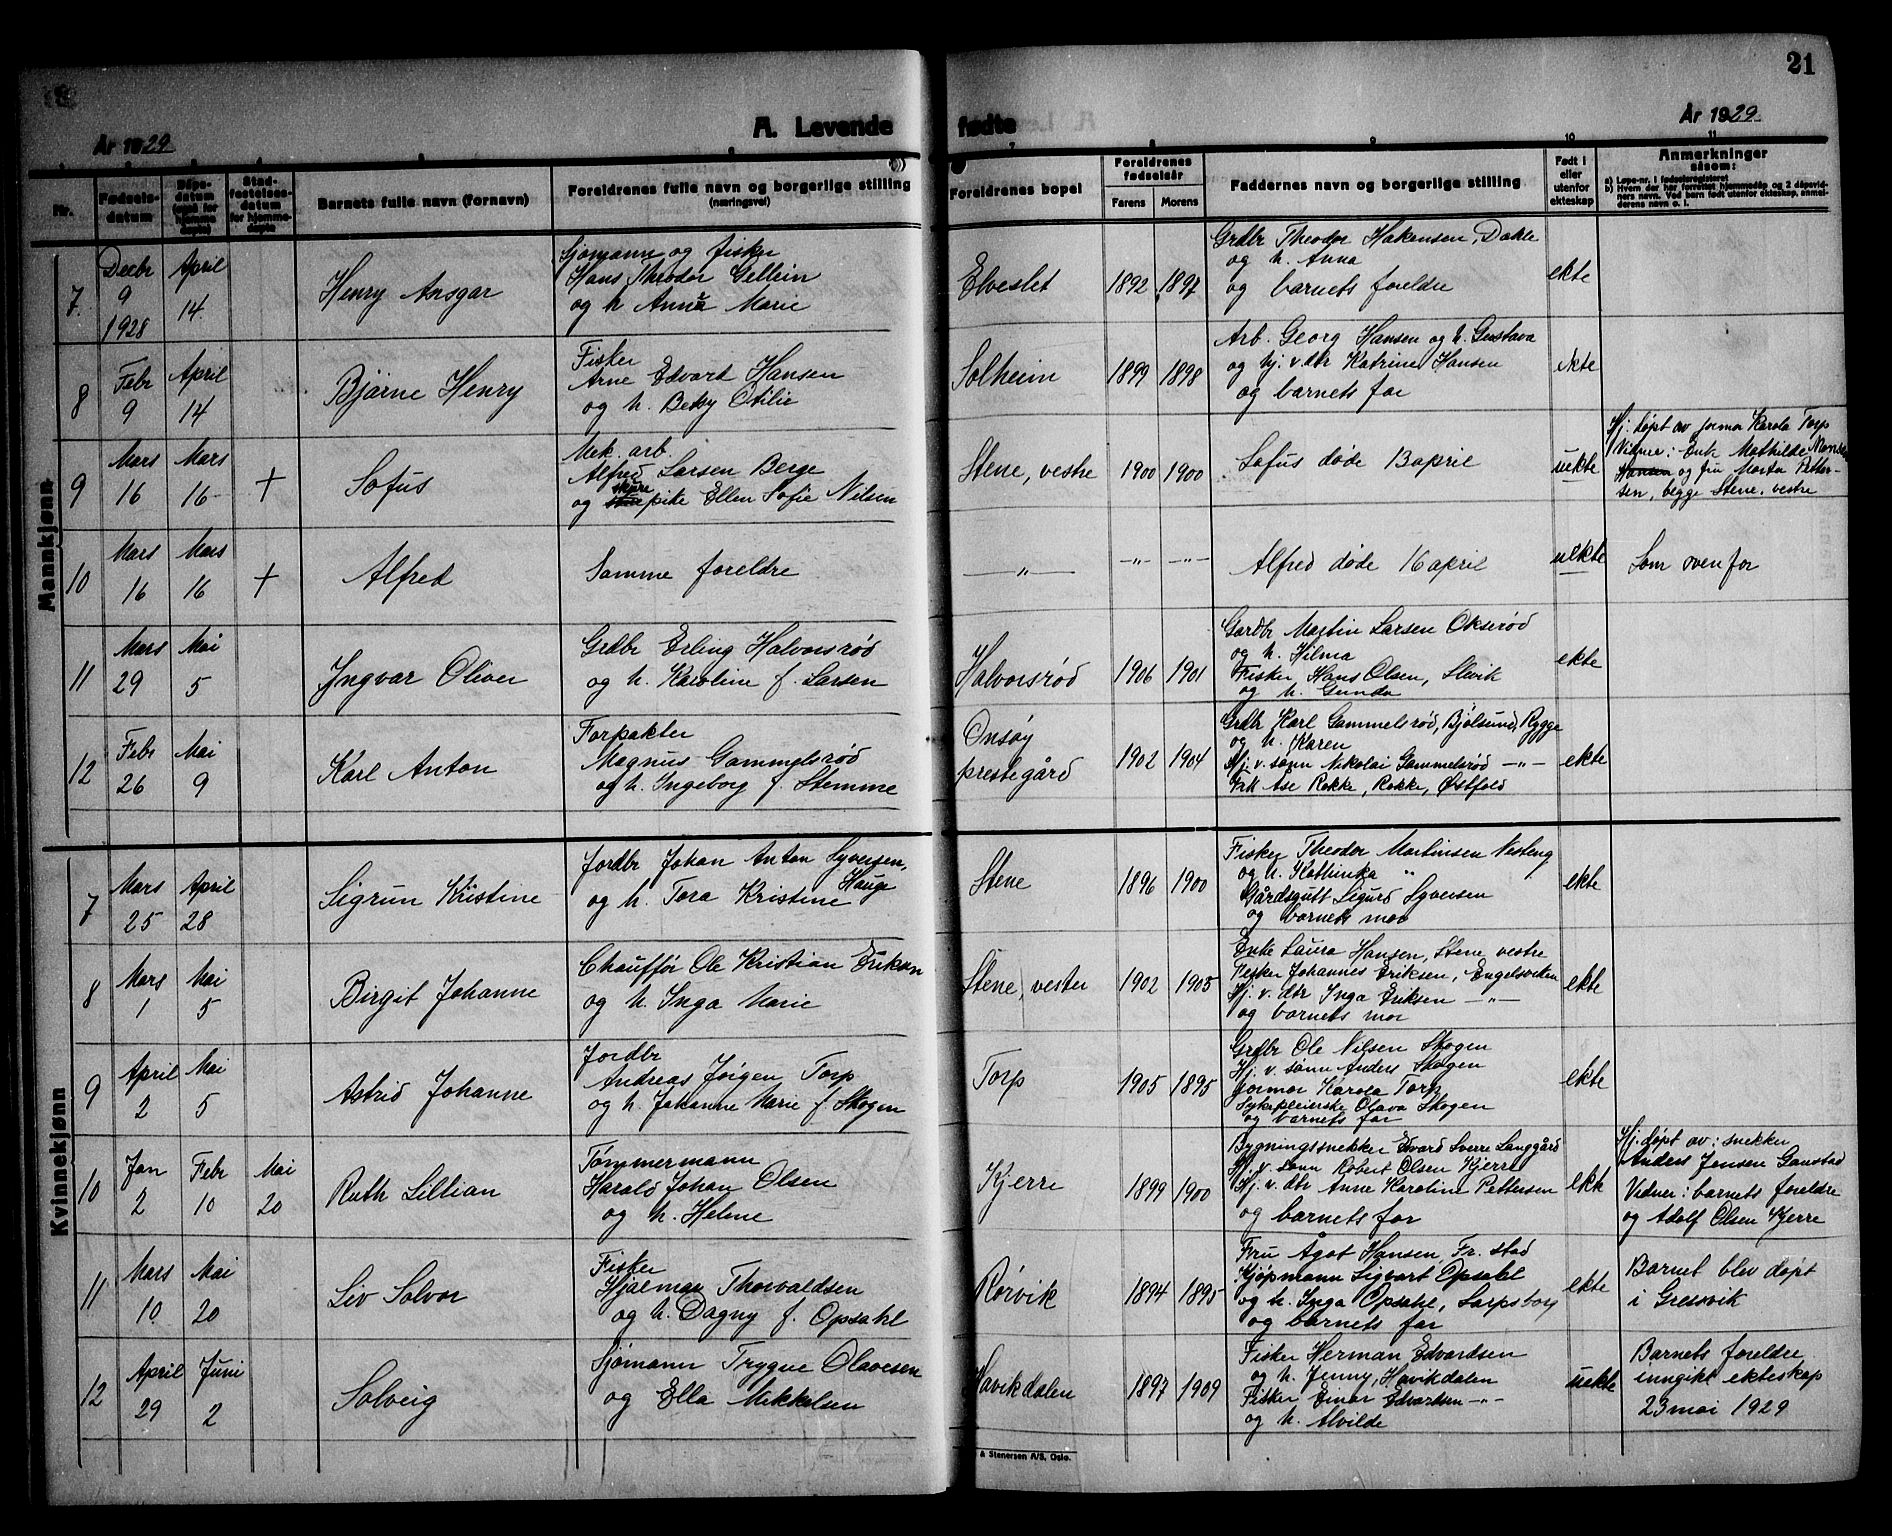 21
År 1929
A. Levende fødte
År 1929
Nr.
Fødsels-datum
Dåps-datum
Stad-festelses-datum for hjemme-døpte
Barnets fulle navn (fornavn)
Foreldrenes fulle navn og borgerlige stilling
(næringsvei)
7
8
9
10
11
Foreldrenes bopel
Foreldrenes fødselsår
Farens
Morens
Faddernes navn og borgerlige stilling
Født i eller utenfor ekteskap
Anmerkninger
såsom:
a) Løpe-nr. i fødselsregisteret
b) Hvem der har forrettet hjemmedåp og 2 dåpsvid-
ners navn. Ved barn født utenfor ekteskap, anmel-
derens navn o. l.
Mannkjønn
7
Decbr 9 1928
April 14
Henry Ansgar
Sjømann og fisker
Hans Theodor Gellein
og h. Anna Marie
Elveslet
1892
1897
Grdbr Theodor Hakensen, Dakle
og h. Anna
og barnets foreldre
ekte
8
Febr 9
April 14
Bjarne Henry
Fisker
Arne Edvart Hansen
og h. Betsy Otilie
Solheim
1899
1898
Arb. Georg Hansen og h. Gustava
og hj. v. dtr Katrine Hansen
og barnets far
ekte
9
Mars 16
Mars 16
+
Sofus
Mek. arb.
Alfred Larsen Berge
og pike Ellen Sofie Nilsen
Stene, vestre
1900
1900
Sofus døde 13 april
uekte
Hj. døpt av formor Karola Torp
Vidner: Enk. Mathilde
Hansen og fru Marta Petter-
sen, begge Stene, vestre
10
Mars 16
Mars 16
+
Alfred
Samme foreldre
— " —
-"-
-"-
Alfred døde 16 april
uekte
Som ovenfor
11
Mars 29
Mai 5
Ingvar Oliver
Grdbr Erling Halvorsrød
og h. Karoline f. Larsen
Halvorsrød
1906
1901
Gardbr Martin Larsen Okserød
og h. Hilma
Fisker Hans Olsen, Slevik
og h. Gunda
ekte
12
Febr 26
Mai 9
Karl Anton
Forpakter
Magnus Gammelsrød
og h. Ingeborg f. Stemme
Onsøy
prestegård
1902
1904
Grdbr Karl Gammelsrød, Bjølsund, Rygge
og h. Karen
Hj. v. sønn Nikolai Gammelsrød -"-
Frk. Åse Rokke, Rokke, Østfold
ekte
Kvinnekjønn
7
Mars 25
April 28
Sigrun Kristine
Jordbr Johan Anton Syversen,
Hauge
og h. Tora Kristine
Stene
1896
1900
Fisker Theodor Martinsen Vesteng
og h. Kathinka "
Gårdsgutt Sigurd Syversen
og barnets mor
ekte
8
Mars 1
Mai 5
Birgit Johanne
Chauffør Ole Kristian Eriksen
og h. Inga Marie
Stene, vester
1902
1905
Enke Laura Hansen, Stene vestre
Fisker Johannes Eriksen, Engelsviken
Hj. v. dtr Inga Eriksen -"-
og barnets mor
ekte
9
April 2
Mai 5
Astrid Johanne
Jordbr
Andreas Jørgen Torp
og h. Johanne Marie f. Skogen
Torp
1905
1895
Grdbr Ole Nilsen Skogen
Hj. v. sønn Anders Skogen
formor Karola Torp
Sykepleierske Olava Skogen
og barnets far
ekte
10
Jan 2
Febr 10
Mai 20
Ruth Lillian
Tømmermann
Harald Johan Olsen
og h. Helene
Kjerre
1899
1900
Bygningssnekker Edvard Sverre Langgård
Hj. v. sønn Robert Olsen Kjerre
Hj. v. dtr Anne Karoline Pettersen
og barnets far
ekte
Hj. døpt av: snekker
Anders Jensen Gaustad
Vidner: barnets foreldre
og Adolf Olsen Kjerre
11
Mars 10
Mai 20
Liv Solvor
Fisker
Hjalmar Thorvaldsen
og h. Dagny f. Opsahl
Rørvik
1894
1895
Fru Ågot Hansen, Fr. stad
Kjøpmann Sigvart Opsahl
og h. Inga Opsahl, Sarpsborg
og barnets far
ekte
Barnet blev døpt
i Gressvik
12
April 29
Juni 2
Solveig
Sjømann Trygve Olavesen
og Ella Mikkelsen
Havikdalen
1897
1909
Fisker Herman Edvardsen
og h. Jenny, Havikdalen
Fisker Einar Edvardsen -"-
og h. Alvilde
uekte
Barnets foreldre
inngikk ekteskap
23 mai 1929
& Stenersen A/S, Oslo.